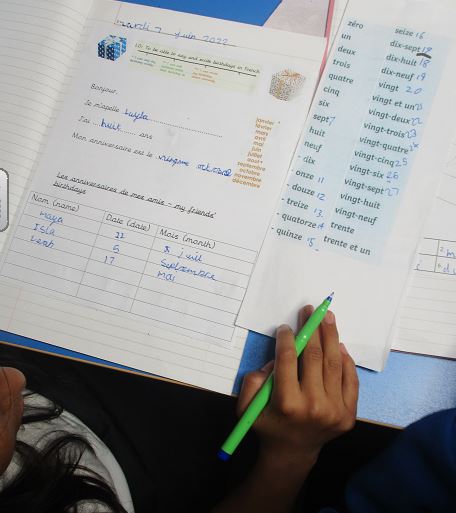 mardi 7 Juin 2022
LO: To be able to say and write birthdays in French
Bonjour.
Je m'appelle Layla
J'ai huit ans
Mon anniversaire est le octobre
janvier
février
mars
avril
mai
juin
juillet
août
septembre
octobre
novembre
décembre
Les anniversaires de mes amie - my friends'
birthdays
Nom (name) Date (date) Mois (month)
Maya 22 Juil
Isla 5 Septembre
Leah 17 Mai
zéro
un
deux
trois
quatre
cinq
six
sept 7
huit
neuf
- dix
- onze 11
- douze 12
- treize 13
- quatorze 14
- quinze 15
seize 16
dix-sept
dix-huit 18
dix-neuf 19
vingt 20
vingt et un 21
vingt-deux 22
vingt-trois 23
vingt-quatre
vingt-cinq 25
vingt-six 26
vingt-sept 27
vingt-huit
vingt-neuf
trente
trente et un